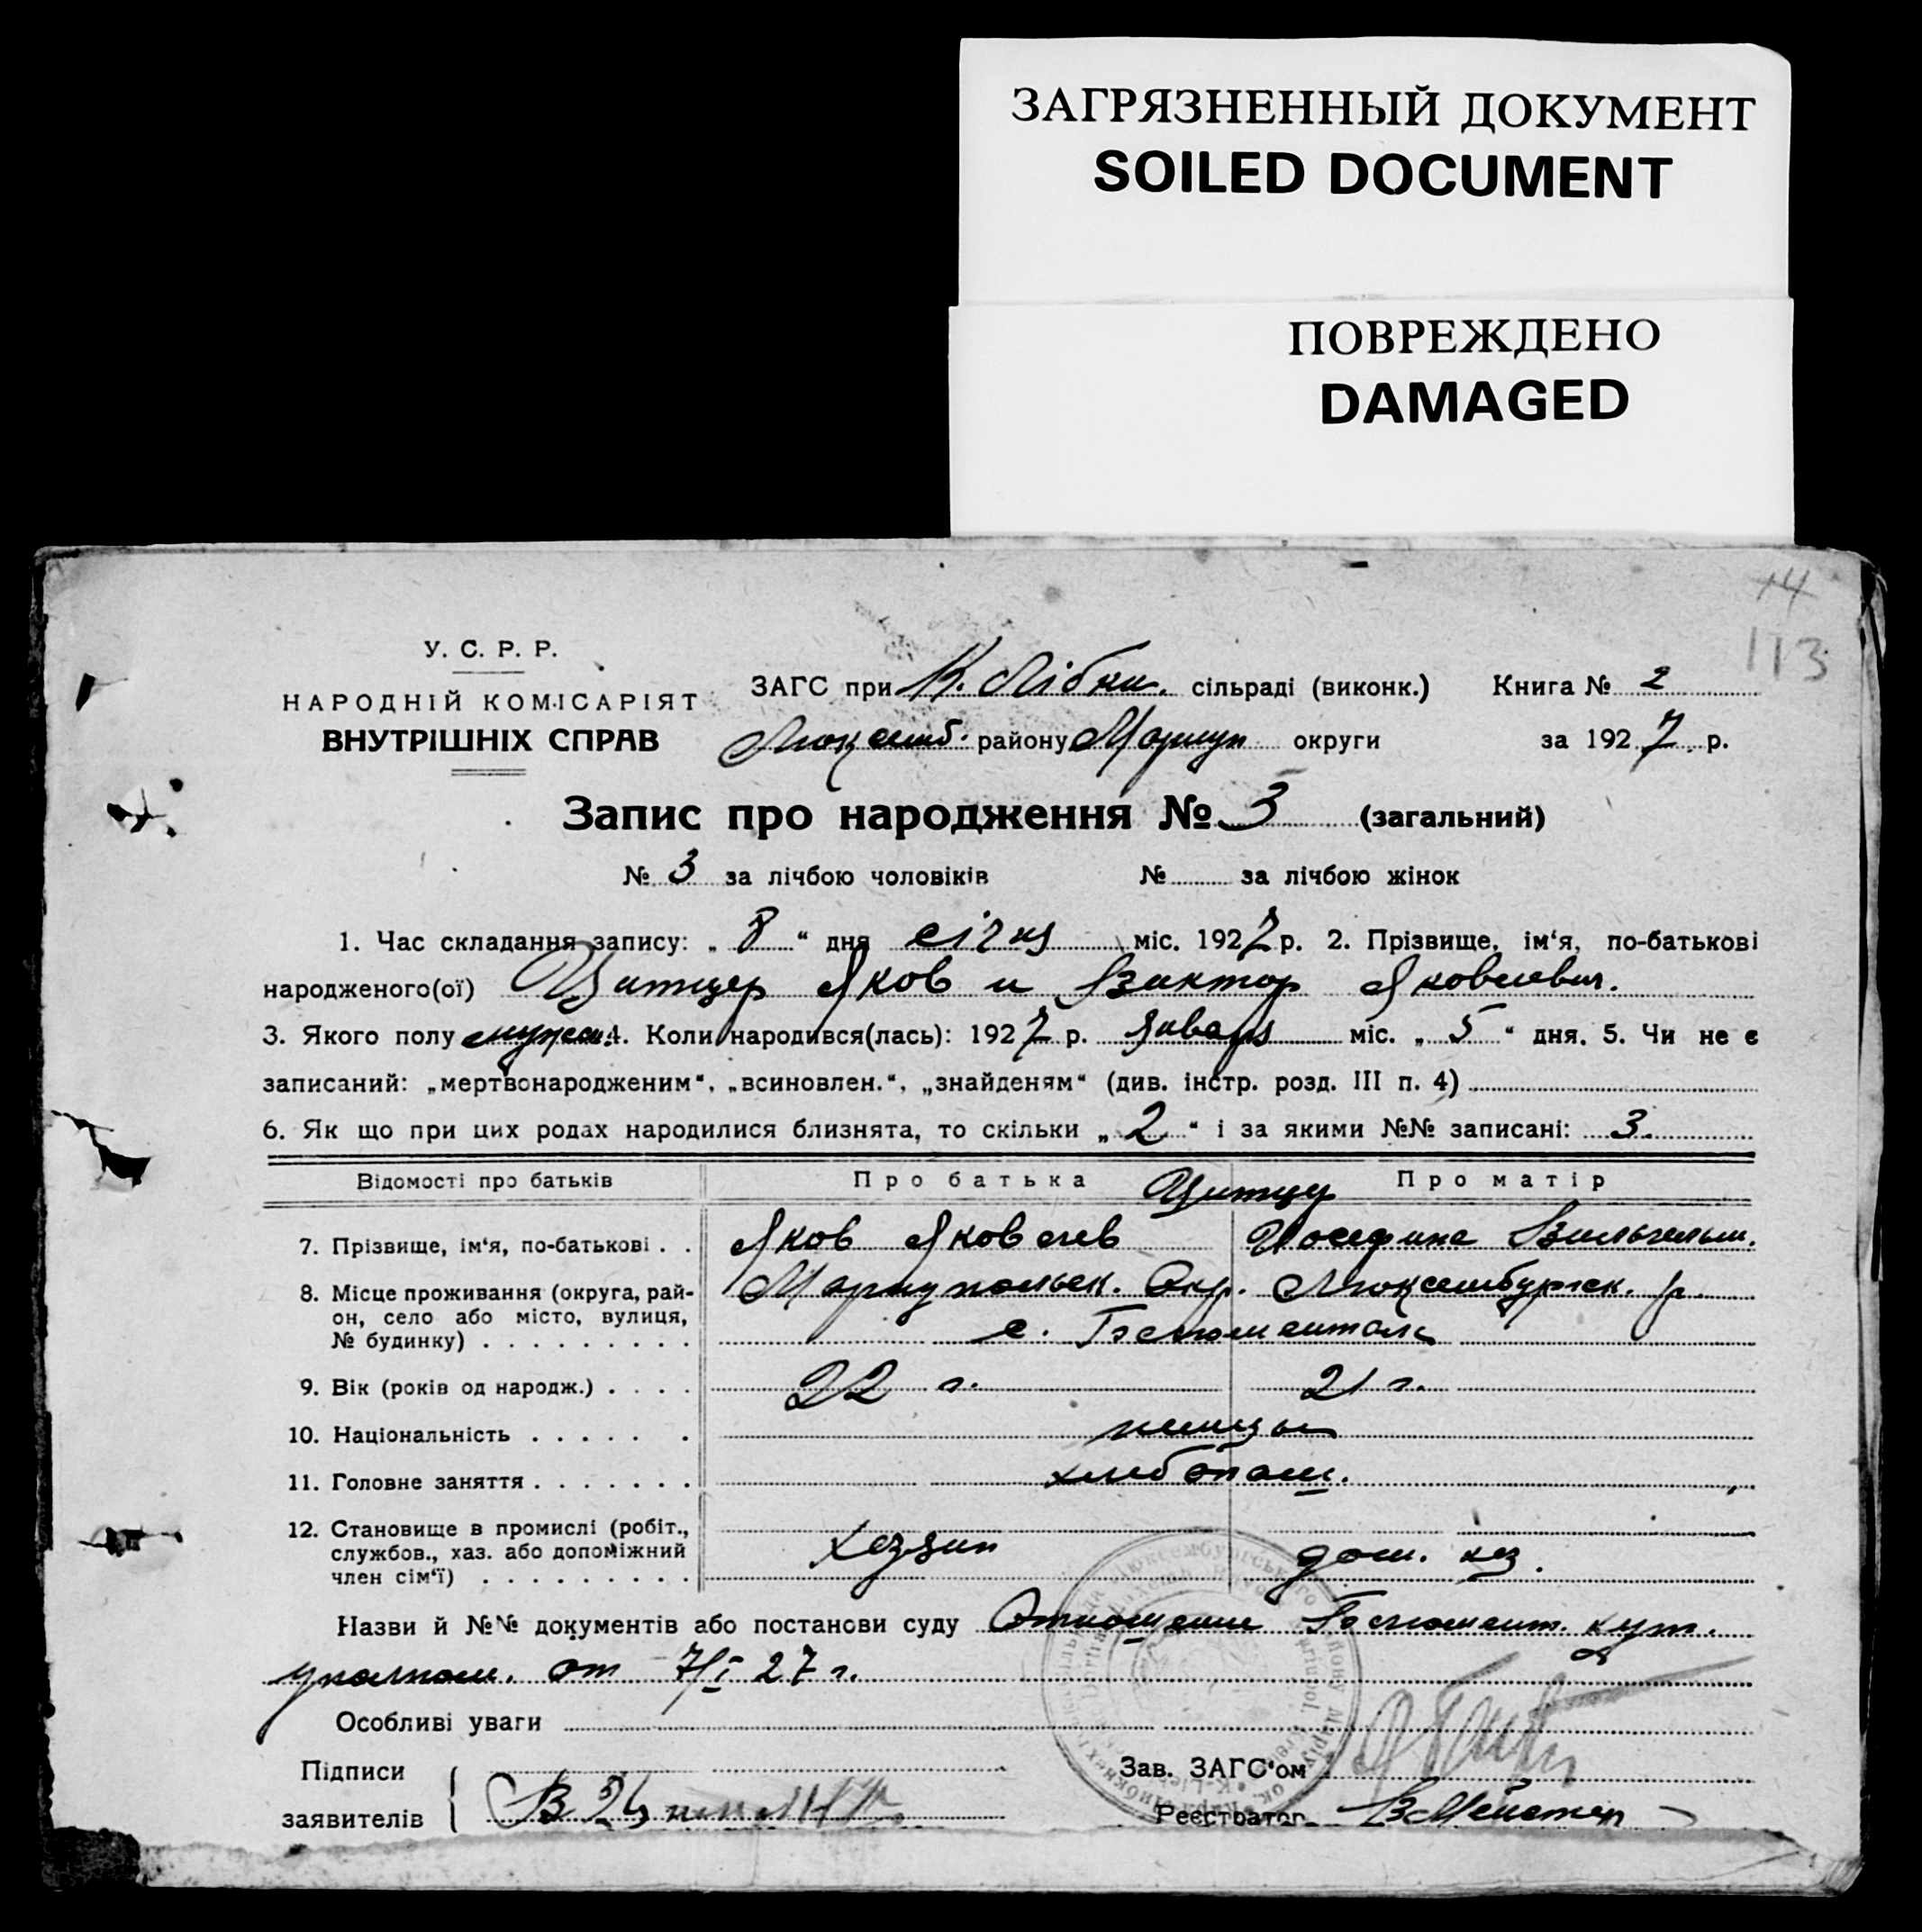 ЗАГРЯЗНЕННЫЙ ДОКУМЕНТ
SOILED DOCUMENT
ПОВРЕЖДЕНО
DAMAGED
14
113
У. С. Р. Р.
НАРОДНІЙ КОМІСАРІЯТ
ВНУТРІШНІХ СПРАВ
ЗАГС при К. Лібкн. сільраді (виконк.) Книга № 2
Люксемб. району Мариуп. округи за 1927 р.
Запис про народження № 3 (загальний)
№ 3 за лічбою чоловіків № за лічбою жінок
1. Час складання запису: „ 8 “ дня січня міс. 1927 р. 2. Прізвище, ім‘я, по-батькові
народженого(ої) Цитцер Яков и Виктор Яковлевич.
3. Якого полу мужск. 4. Коли народився(лась): 1927 р. января міс. „ 5 “ дня. 5. Чи не є
записаний: „мертвонародженим“, „всиновлен.“, „знайденям“ (див. інстр. розд. III п. 4)
6. Як що при цих родах народилися близнята, то скільки „ 2 “ і за якими №№ записані: 3.
Відомості про батьків Про батька Про матір
Цитцер
7. Прізвище, ім‘я, по-батькові . . Яков Яковлев Иосефина Вильгельм.
8. Місце проживання (округа, рай-
он, село або місто, вулиця,
№ будинку) . . . . . . . . .
Мариупольск. Окр. Люксембургск. р.
с.
9. Вік (років од народж.) . . . . 22 г. 21 г.
10. Національність . . . . . . немцы
11. Головне заняття . . . . . . . хлебопаш.
12. Становище в промислі (робіт.,
службов., хаз. або допоміжний
член сім‘ї) . . . . . . . . .
хозяин дом. хоз.
Назви й №№ документів або постанови суду Отношение хут.
уполном. от 7/I 27 г.
Особливі уваги
Підписи
заявителів
Зав. ЗАГС‘ом
Реєстратор В Мейстер